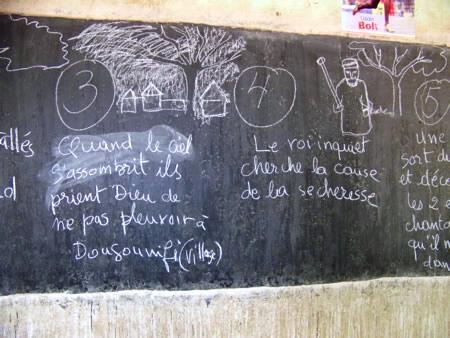 Boli
3
Quand le ciel
s'assombrit ils
prient Dieu de
ne pas pleuvoir à
Dougounifi (village)
4
Le roi inquiet
cherche la cause
de la secheresse
5
une
sort du
et déce
les 2 e
chanta
qu'il n
dan